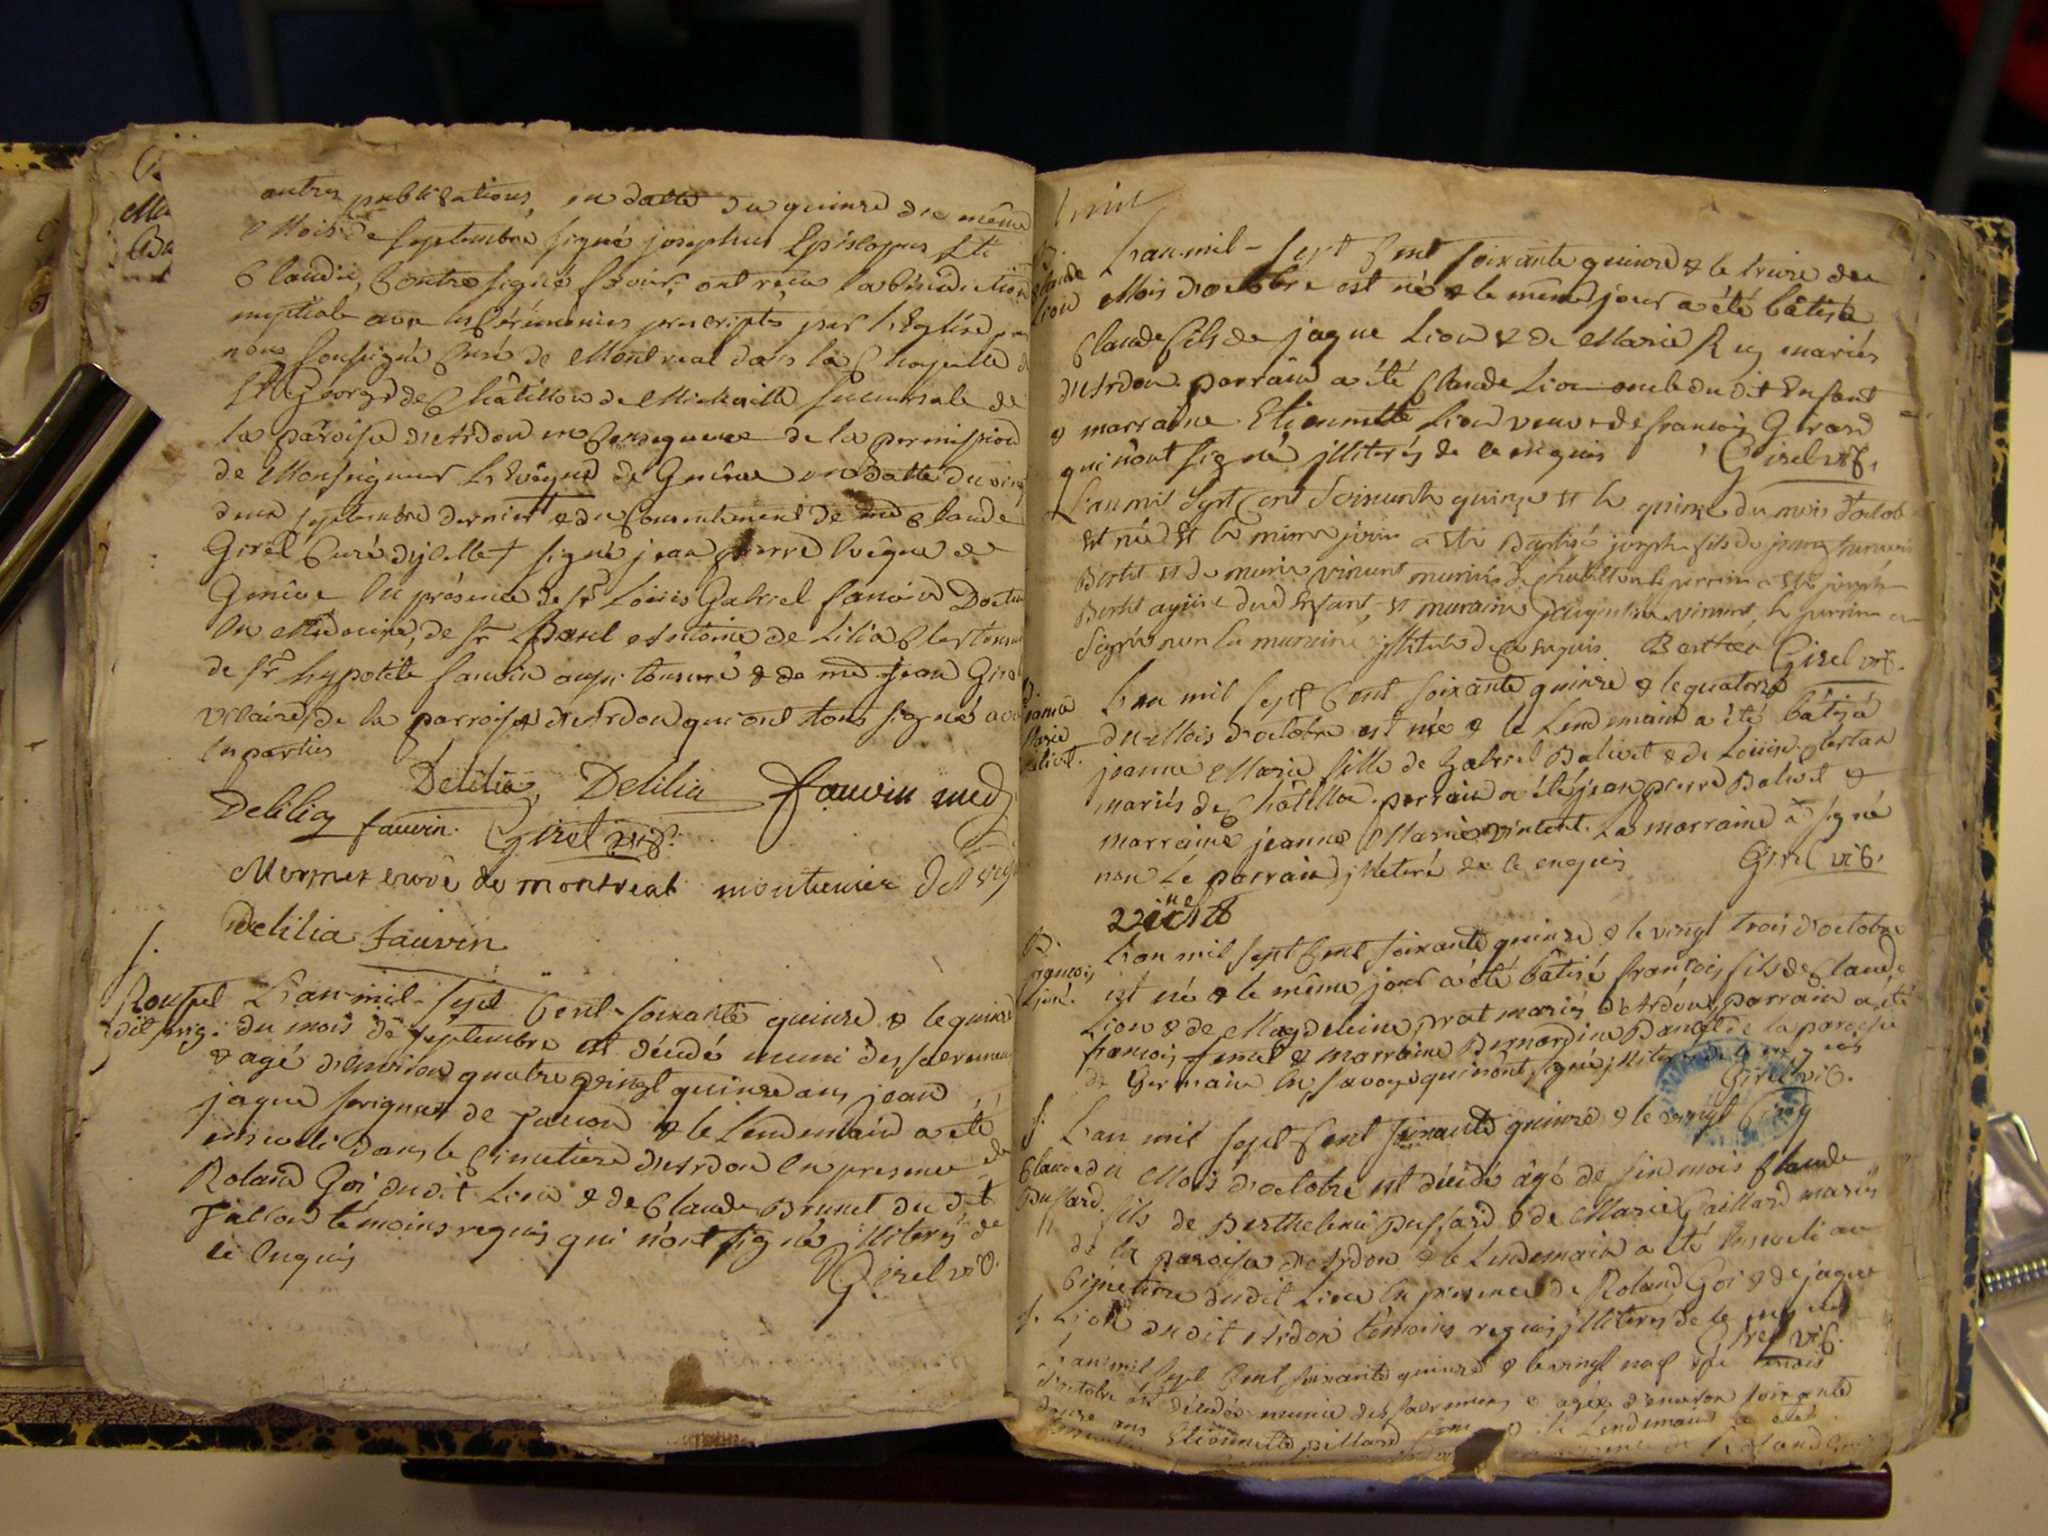 autres publications, en datte du quinze du même
Mois de septembre signé josephus Episcopus Sti
Claudii, Contresigné ont reçu la bénédiction
nuptiale avec les Cérémonies prescriptes par l'Eglise par
nous soussigné Curé de Montreal dans la Chapelle de
St George de Châtillon de Michaille succursale de
la paroisse d'Ardon en Consequence de la permission
de Monseigneur L'Evêque de Genêve en Datte du vingt
deux septembre dernier & du Consentement de Claude
Girel Curé signé jean pierre Evêque de
Genêve En présence de Sr Loüis Gabriel fauvin Docteur
En Medecine, de Sr Antoine de Lilia Clerc tonsuré
de Sr hypolite fauvin aussi tonsuré & de jean Girel
vicaire de la parroisse d'Ardon qui ont tous signé avec
les parties
Delilia, Delilia fauvin med
Delilia fauvin. Girel vic.
Mermet curé de montreal
Delilia fauvin
f.
L'an mil sept Cent soixante quinze & le quinze
du mois de septembre est décédé muni des sacremens
& agé d'environ quatre vingt quinze ans jean
jaque & le Lendemain a été
enseveli dans le Cimetiere d'Ardon En presence de
Roland Goi du dit Lieu & de Claude Brunet du dit
témoins requis qui n'ont signé illiterés de
ce Enquis
Girel vic.
L'an mil sept Cent soixante quinze & le treize du
Claude
Lion
Mois d'octobre est né & le même jour a été bâtisé
Claude fils de jaque Lion & de Marie Rey mariés
d'Ardon. parrain a été Claude Lion oncle du dit Enfant
& marraine Etiennette Lion veuve de françois Girard
qui n'ont signé illiterés de ce enquis Girel vic.
L'an mil Sept Cent Soixante quinze et le quinze du mois d'octob
est née et le même jour a été Baptisé joseph fils de
Berthet et de marie vincent mariés de chatillon le parrain a été joseph
Berthet dud Enfant et maraine vincent, le parrain a
Signé non la maraine illitérée de ce enquis. Berthet Girel vic.
L'an mil sept Cent soixante quinze & le quatorze
jeanne
Marie
Balivet.
du Mois d'octobre est née & le Lendemain a été bâtisé
jeanne Marie fille de Gabriel Balivet & de Loüise
mariés de Châtillon. parrain a été jean pierre Balivet &
marraine jeanne Marie vincent. La marraine a signé
non Le parrain illiteré de ce enquis Girel vic.
B.
françois
Lion.
L'an mil sept Cent soixante quinze & le vingt trois d'octobre
est né & le même jour a été bâtisé françois fils de Claude
Lion & de Magdeleine prat mariés d'Ardon, parrain a été
françois & marraine Bernardine de la paroisse
de Germain En savoye qui n'ont signé illiterés de ce enquis
Girel vic.
f.
L'an mil sept Cent soixante quinze & le vingt Cinq
Claude
Pussard.
du Mois d'octobre est décédé âgé de six mois Claude
fils de Berthelemi Pussard & de Marie Gaillard mariés
de la paroisse d'Ardon & le Lendemain a été Enseveli au
Cimetiere dudit Lieu En presence de Roland Goi & de jaque
Lion du dit Ardon témoins requis illiterés de ce enquis
Girel vic.
f.
L'an mil sept Cent soixante quinze & le vingt neuf du mois
d'octobre est décédée munie des sacremens & agée d'environ soixante
douze ans Etiennette pillard & le Lendemain a été